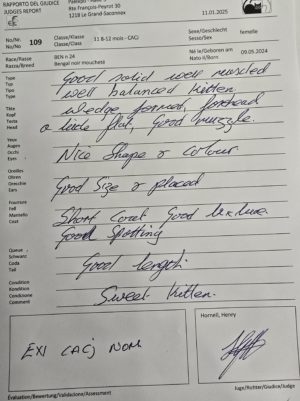 RAPPORTO DEL GIUDICE
JUDGES REPORT
Rte François-Peyrot 30
1218 Le Grand-Saconnex
11.01.2025
No./Nr.
No/No
109
Classe/Klasse
Classe/Class
11 8-12 mois - CACJ
Sexe/Geschlecht
Sesso/Sex
femelle
Race/Rasse
Razza/Breed
BEN n 24
Bengal noir moucheté
Né le/Geboren am
Nato il/Born
09.05.2024
Type
Typ
Tipo
Type
Good solid well muscled
well balanced kitten
Tête
Kopf
Testa
Head
wedge formed, forehead
a little flat, Good muzzle.
Yeux
Augen
Occhi
Eyes
Nice Shape & colour
Oreilles
Ohren
Orecchie
Ears
Good Size & placed
Fourrure
Fell
Mantello
Coat
Short coat Good texture
Good Spotting
Queue
Schwanz
Coda
Tail
Good length
Condition
Kondition
Condizione
Condition
Comments
Sweet Kitten.
EX1 CACJ NOM
Hornell, Henry
Évaluation/Bewertung/Valutazione/Assessment
Juge/Richter/Giudice/Judge